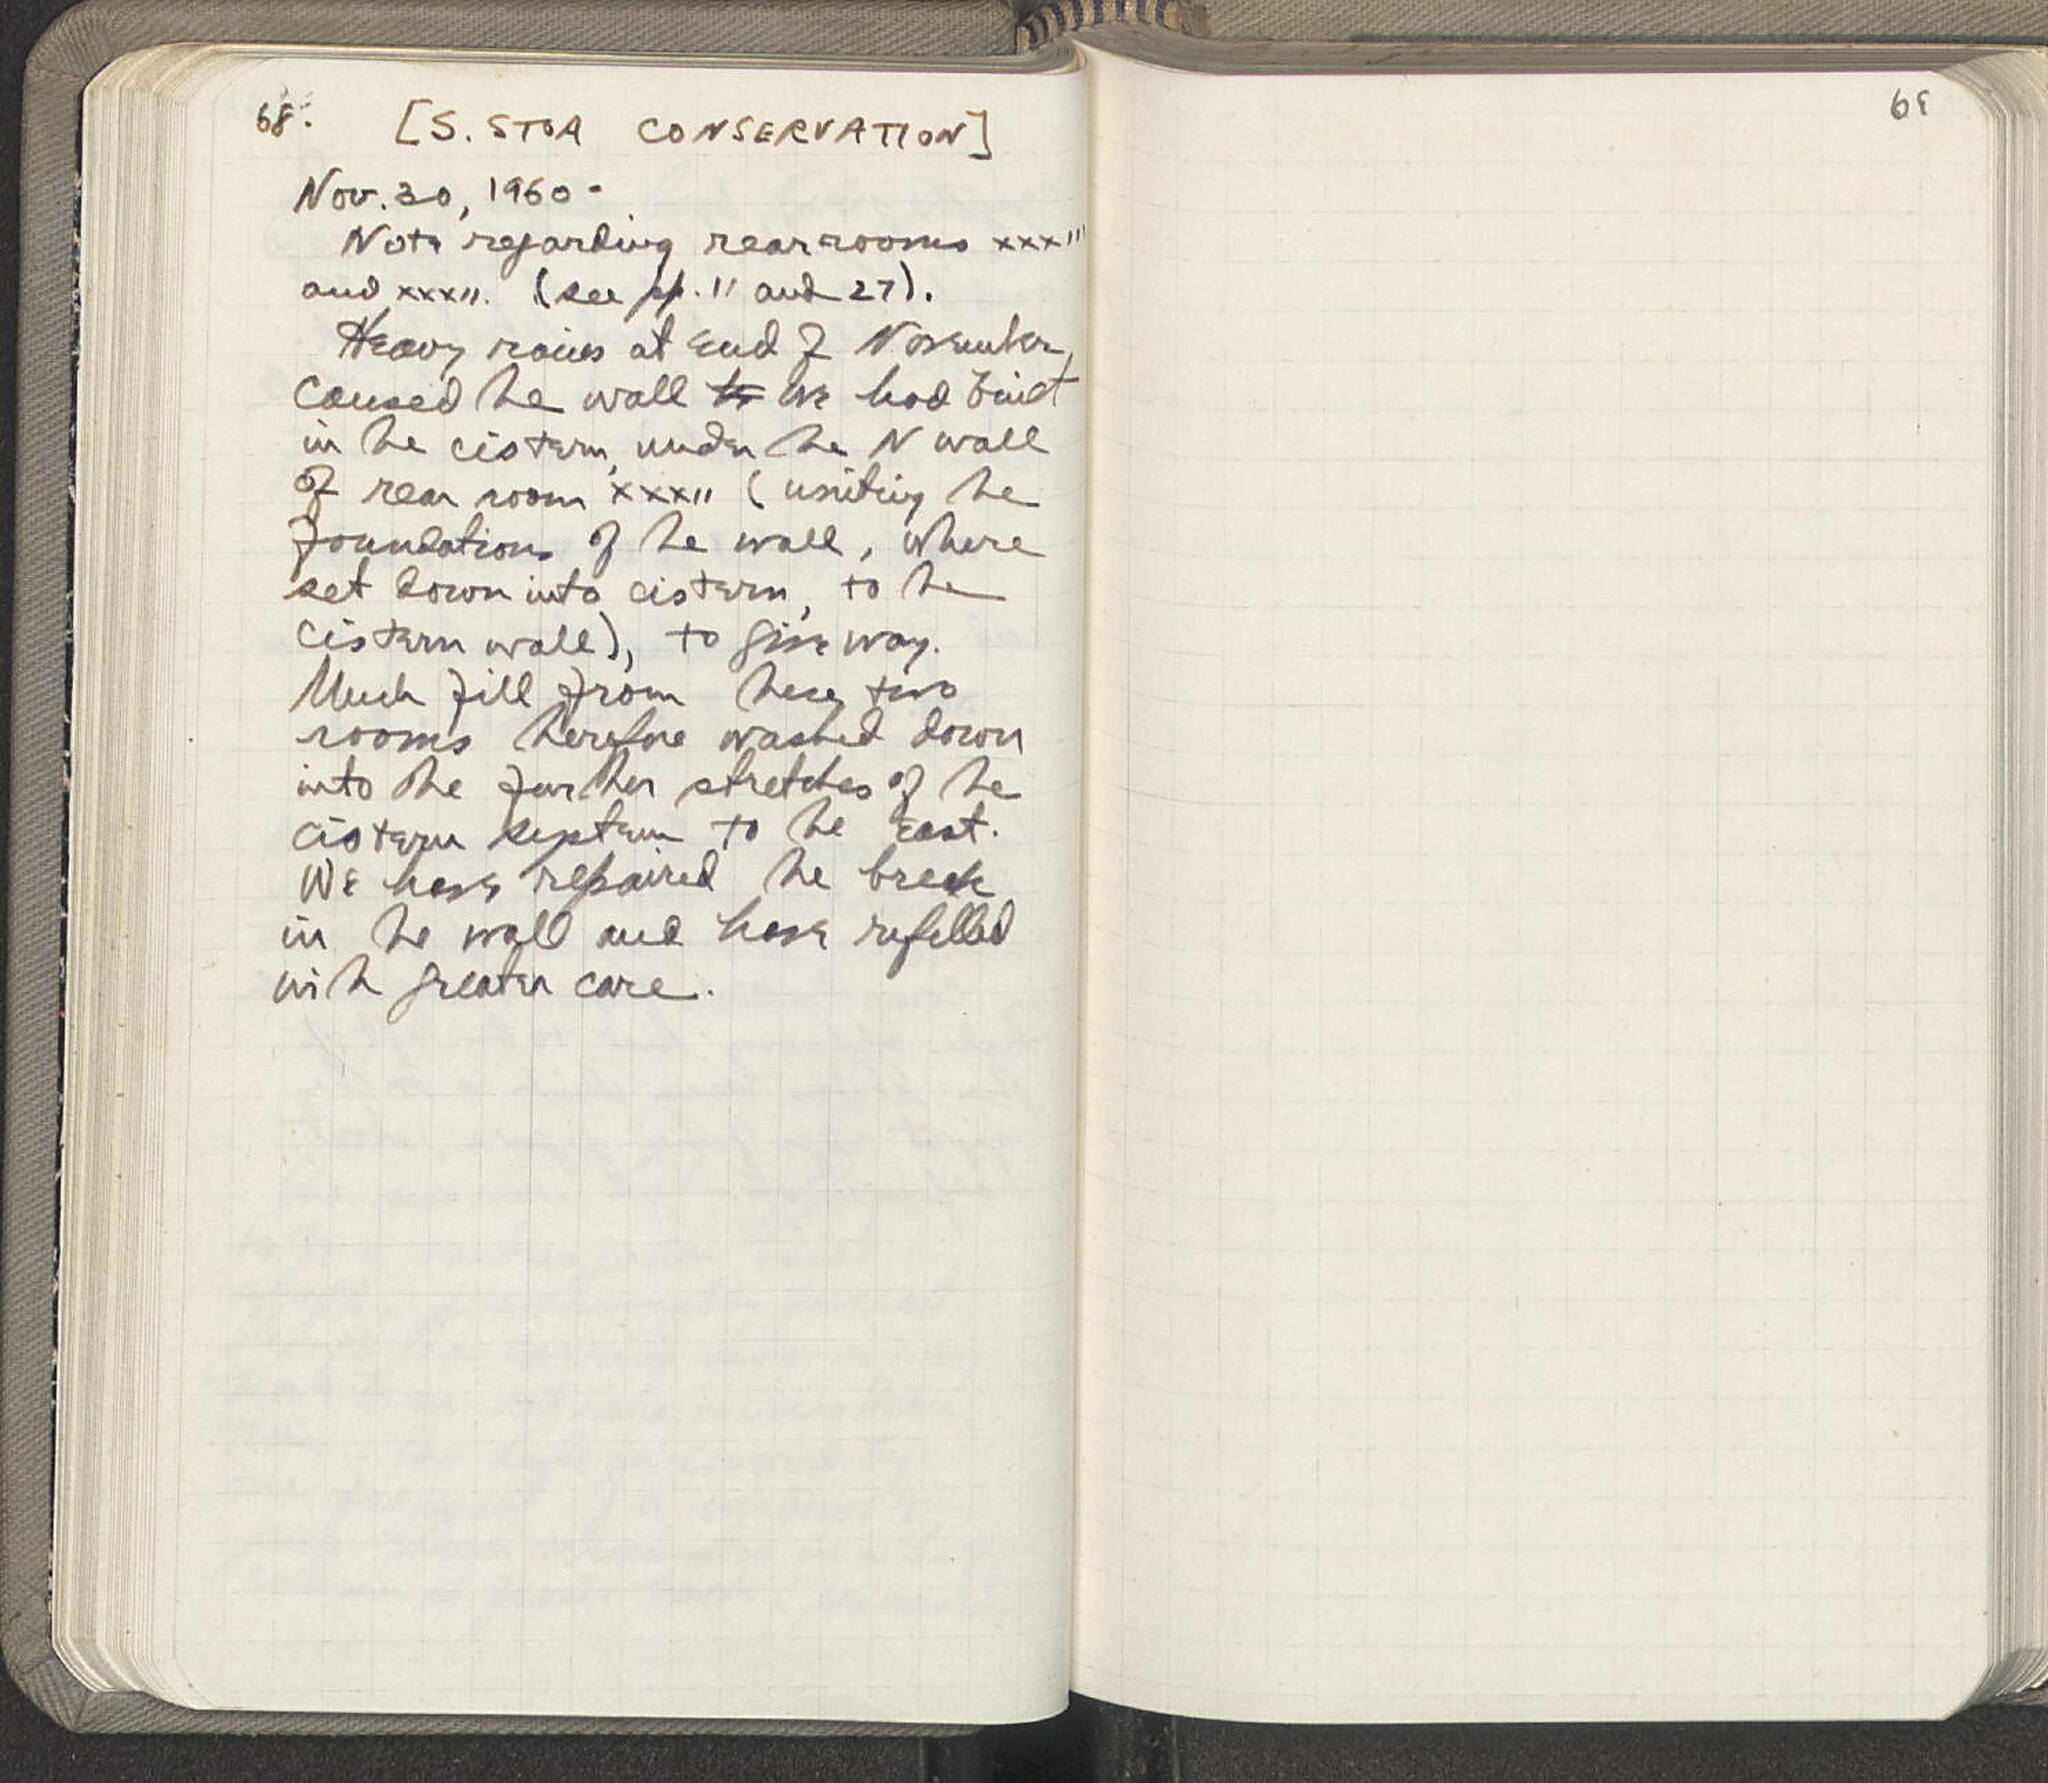 68. [S. STOA CONSERVATION]
Nov. 30, 1960 -
Note regarding rear rooms XXXIII
and XXXII. (see pp. 11 and 27).
Heavy rains at end of November,
caused the wall we had built
in the cistern, under the N wall
of rear room XXXII (uniting the
foundations of the wall, where
set down into cistern, to the
cistern wall), to give way.
Much fill from these two
rooms therefore washed down
into the further stretches of the
cistern system to the East.
We have repaired the break
in the wall and have refilled
with greater care.
69